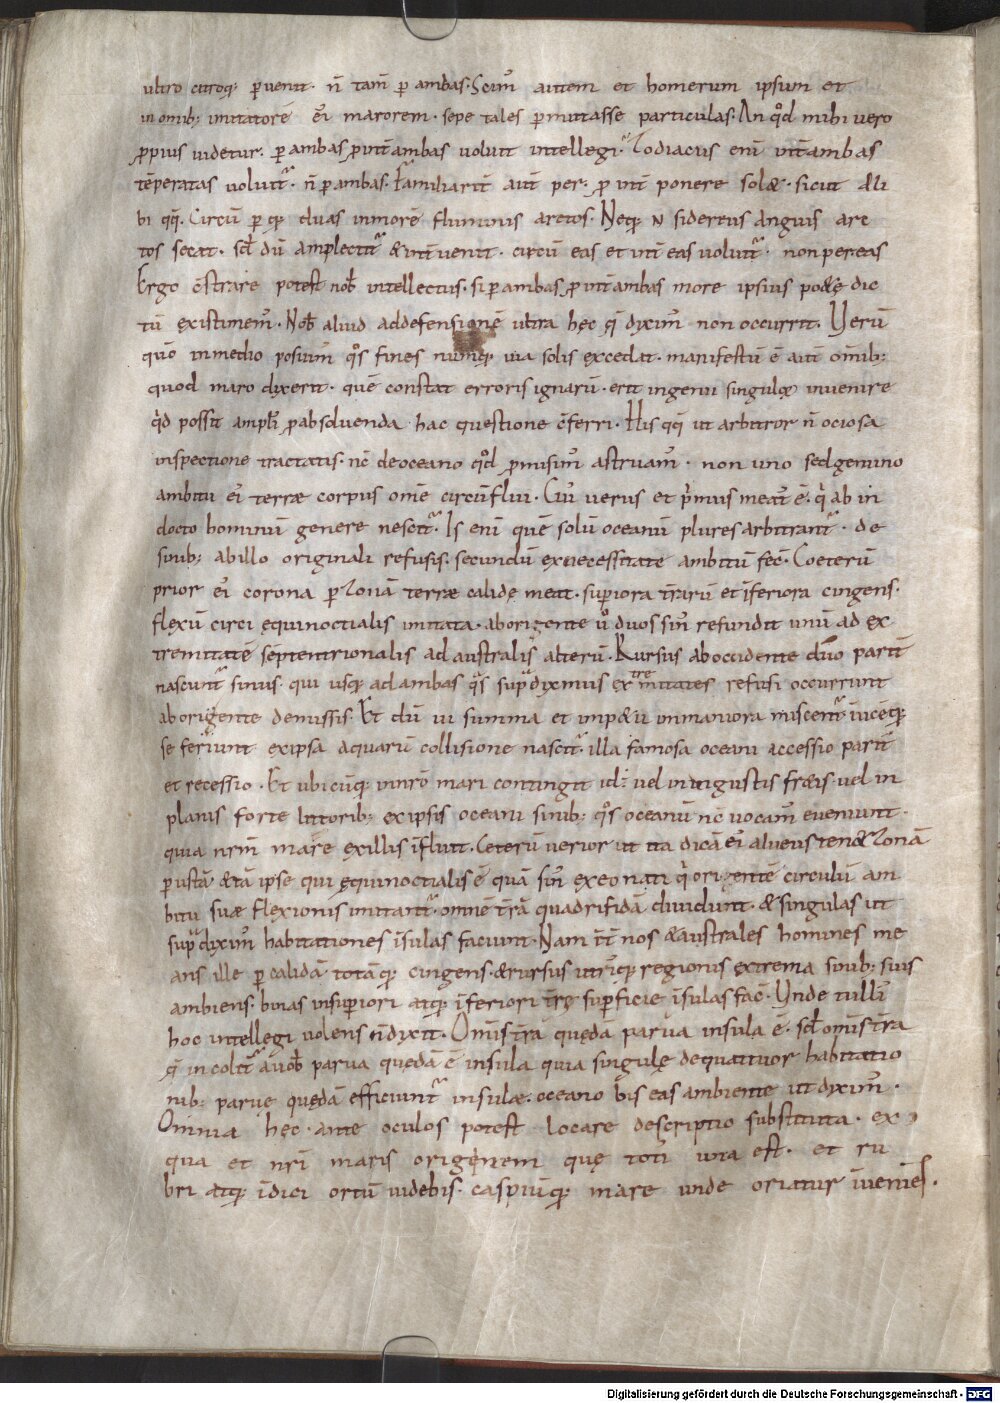 ultro citroq; ꝑuenit. n̄ tam̄ ꝑ ambas. Scim᷒ autem et homerum ipsum et
in omib; imitatorē ei᷒ maronem. sepe tales ꝑmutasse particulas. An qͦd mihi vero
ꝓpius uidetur. ꝑ ambas ꝓ int̄ ambas voluit intellegi. Zodiacus eni int̄ ambas
tēperatas voluit᷑. n̄ ꝑ ambas. Familiarit̄ aut̄ per. ꝓ int̄ ponere sol&. sicut ali
bi qq̨. Circū ꝑ q; duas in morē fluminis arctos. Neq; N sidereus anguis arc
tos secat. sꝫ dū amplectit᷑ & int̄uenit. circū eas et int̄ eas voluit᷑. non per eas
Ergo c̄strare potest nob̄ intellectus. si ꝑ ambas ꝓ int̄ ambas more ipsius po&ę dic
tū existimem᷒. Nob̄ aliud ad defensionē ultra hęc q̄ dixim᷒ non occurrit. Verū
quō in medio posuim᷒ qͦs fines numq; uia solis excedat. manifestū ē aut̄ om̄ib;
quod maro dixerit. quē constat erroris ignarū. erit ingenii singulor invenire
qͥd possit ampl̄i ꝓ absoluenda hac questione c̄ferri. His qq̨ ut arbitror n̄ ociosa
inspectione tractatis. nc̄ de oceano qͦd ꝓmisim᷒ astruam᷒. non uno sed gemino
ambitu ei᷒ terrae corpus omē circūflui. Cui᷒ uerus et pͥmus meat᷒ ē. qͥ ab in
docto hominū genere nescit᷑. Is eni quē solū oceanū plures arbitrant᷑. de
sinib; ab illo originali refusis. secundū ex necessitate ambitū fec̄. Coeterū
prior ei᷒ corona ꝑ Zonā terrae calidę meat. suꝑiora t̄rarū et īferiora cingens.
flexū circi ęquinoctialis imitata. ab origente uͦ duos sin᷒ refundit unū ad ex
tremitatē septentrionalis ad australis alterū. Rursus ab occidente duo parit̄
nascunt᷑ sinus. qui usq; ad ambas qͣs supͣ diximus extremitates refusi occurrunt
ab origente demissis. Et dū ui summa et imp&u inmaniora miscent᷑ inuicēq;
se feriunt ex ipsa aquarū collisione nascit᷑. illa famosa oceani accessio parit̄
et recessio. Et ubicūq; in nrō mari contingit id. vel in angustis fr&is. vel in
planis forte littorib; ex ipsis oceani sinib; qͦs oceanū nc̄ vocam᷒ eueniunt.
quia nrm̄ mare ex illis īfluit. Ceterū verior ut ita dicā ei᷒ alueus ten& Zonā
ꝑustā & tā ipse qui ęquinoctialis ē quā sin᷒ ex eo nati qͥ origentē circulū am
bitu suae flexionis imitant᷑. omnē t̄rā quadrifidā diuidunt. & singulas ut
supͣ dixim᷒ habitationes īsulas faciunt. Nam int̄ nos & australes homines me
ans ille ꝑ calidā totāq; cingens. & rursus utr̄iq; regionis extrema sinib; suis
ambiens. binas in suꝑiori atq; īferiori t̄rę suꝑficie īsulas fac̄. Unde tulli᷒
hoc intellegi uolens n̄ dixit. Omnis t̄ra quędā parua insula ē. sꝫ omnis t̄ra
q̄ incolit᷑ a uob̄ parua quędā ē insula quia singulę de quattuor habitatio
nib; paruę quędā efficiunt᷑ insulae. oceano bis eas ambiente ut dixim᷒.
Omnia hęc. ante oculos potest locare descriptio substituta. ex
qua et nr̄i maris originem quę toti una est. et ru
bri atq; īdici ortū uidebis. caspiūq; mare unde oriatur īuenies.
Digitalisierung gefördert durch die Deutsche Forschungsgemeinschaft - DFG